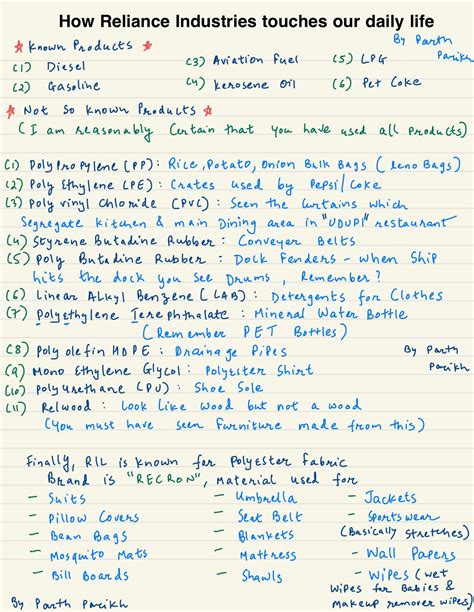 How Reliance Industries touches our daily life
By Parth Parikh
★ Known Products ★
(1) Diesel (3) Aviation Fuel (5) LPG
(2) Gasoline (4) Kerosene Oil (6) Pet Coke
★ Not So Known Products ★
(I am reasonably Certain that you have used all products)
(1) Poly Propylene (PP): Rice, Potato, Onion Bulk Bags (Leno Bags)
(2) Poly Ethylene (PE): Crates used by Pepsi/Coke
(3) Poly vinyl Chloride (PVC): Seen the Curtains which
Segregate Kitchen & main Dining area in "UDUPI" restaurant
(4) Styrene Butadine Rubber: Conveyer Belts
(5) Poly Butadine Rubber: Dock Fenders - When Ship
hits the dock you see Drums, Remember?
(6) Linear Alkyl Benzene (LAB): Detergents for Clothes
(7) Polyethylene Terephthalate: Mineral Water Bottle
(Remember PET Bottles)
(8) Poly olefin HDPE: Drainage Pipes
By Parth Parikh
(9) Mono Ethylene Glycol: Polyester Shirt
(10) Poly urethane (PU): Shoe Sole
(11) Relwood: Look Like Wood but not a wood
(You must have seen Furniture made from this)
Finally, RIL is known for Polyester Fabric
Brand is "RECRON", Material used for
- Suits - Umbrella - Jackets
- Pillow Covers - Seat Belt - Sportswear
- Bean Bags - Blankets (Basically Stretches)
- Mosquito Mats - Mattress - Wall Papers
- Bill Boards - Shawls - Wipes (wet
Wipes for Babies &
Makeup remover wipes)
By Parth Parikh